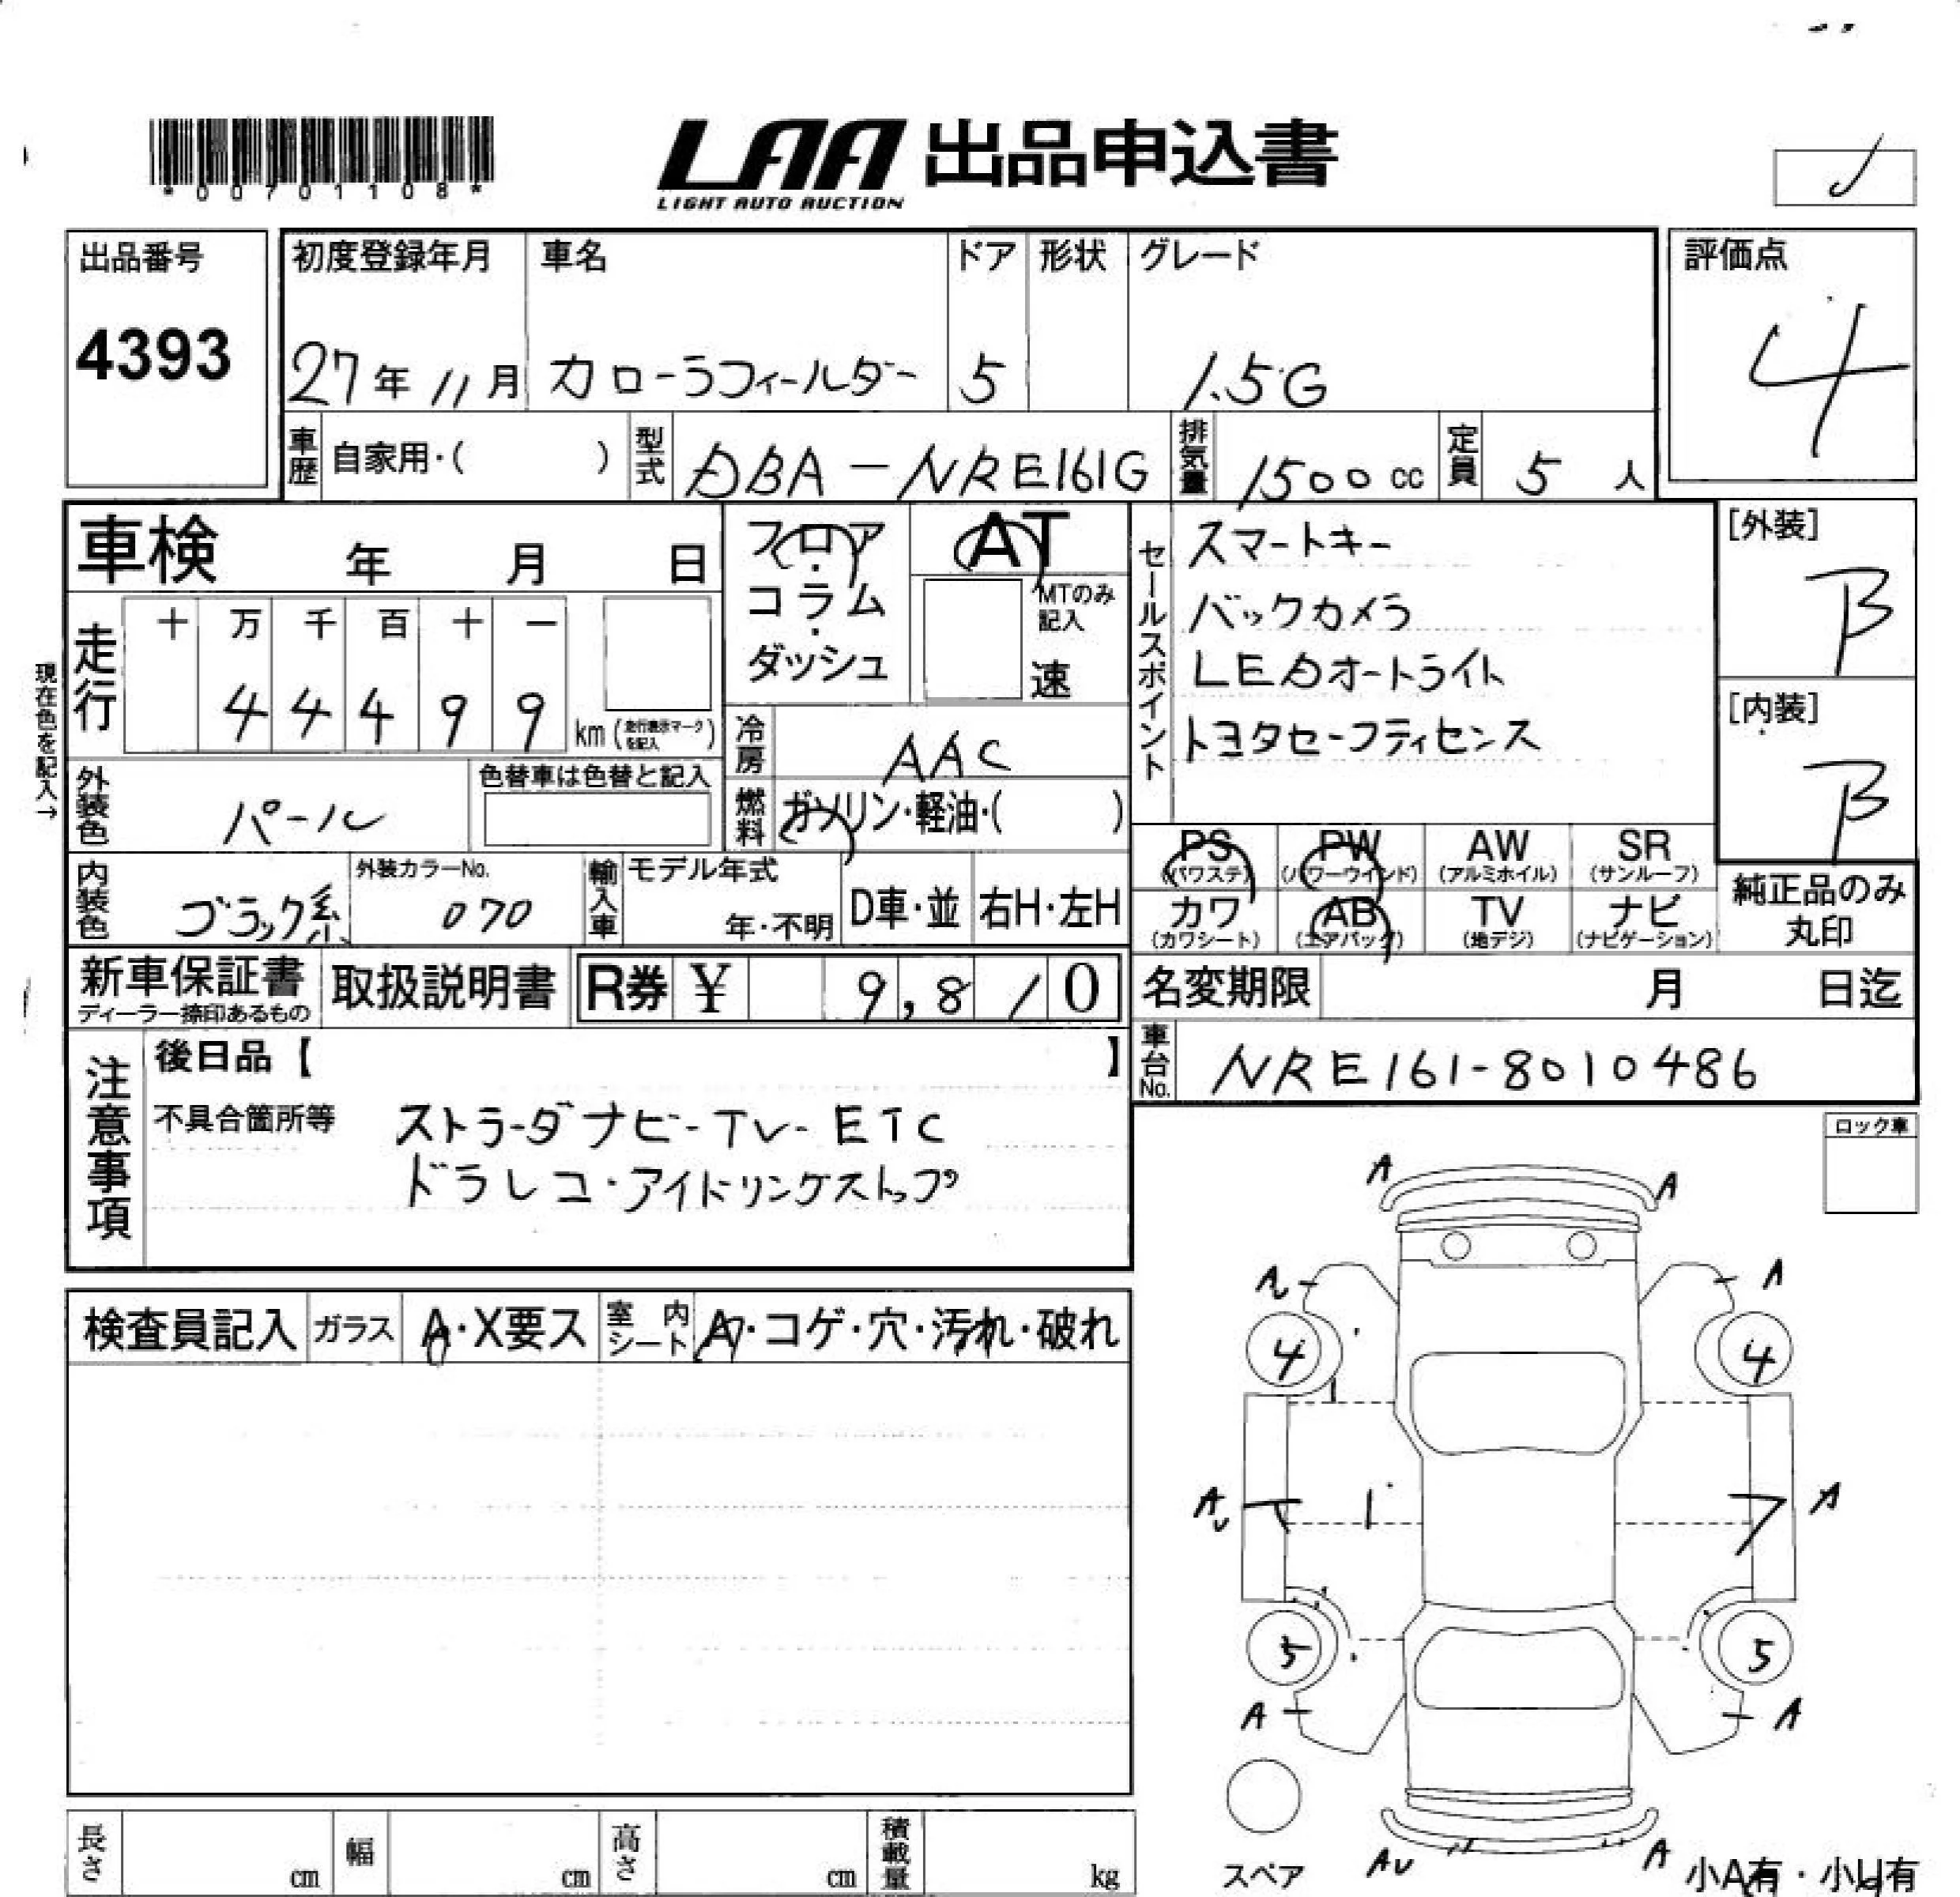 *00701108*
LAA 出品申込書
LIGHT AUTO AUCTION
出品番号
4393
初度登録年月 車名 ドア 形状 グレード
27年11月 カローラフィールダー 5 1.5G
評価点
4
車歴 自家用・( ) 型式 DBA-NRE161G 排気量 1500cc 定員 5人
車検 年 月 日
フロア・コラム・ダッシュ
AT
MTのみ記入
速
セールスポイント
スマートキー
バックカメラ
LEDオートライト
トヨタセーフティセンス
[外装]
B
[内装]
B
現在色を記入→
走行 十 万 千 百 十 一
4 4 4 9 9 km (走行表示マークを記入)
冷房 AAC
燃料 ガソリン・軽油・( )
外装色 パール 色替車は色替と記入
内装色 ブラック系 外装カラーNo. 070
輸入車 モデル年式 年・不明 D車・並 右H・左H
PS (パワステ) PW (パワーウインド) AW (アルミホイル) SR (サンルーフ)
カワ (カワシート) AB (エアバッグ) TV (地デジ) ナビ (ナビゲーション)
純正品のみ丸印
新車保証書 ディーラー捺印あるもの 取扱説明書 R券 ¥ 9,810
名変期限 月 日迄
車台No. NRE161-8010486
注意事項
後日品【 】
不具合箇所等 ストラーダナビ-TV-ETC
ドラレコ・アイドリングストップ
ロック車
検査員記入 ガラス A・X要ス 室内シート A・コゲ・穴・汚れ・破れ
A A
A
4 4
A
A
5 5
A A
スペア
AU A
小A有・小U有
長さ cm 幅 cm 高さ cm 積載量 kg